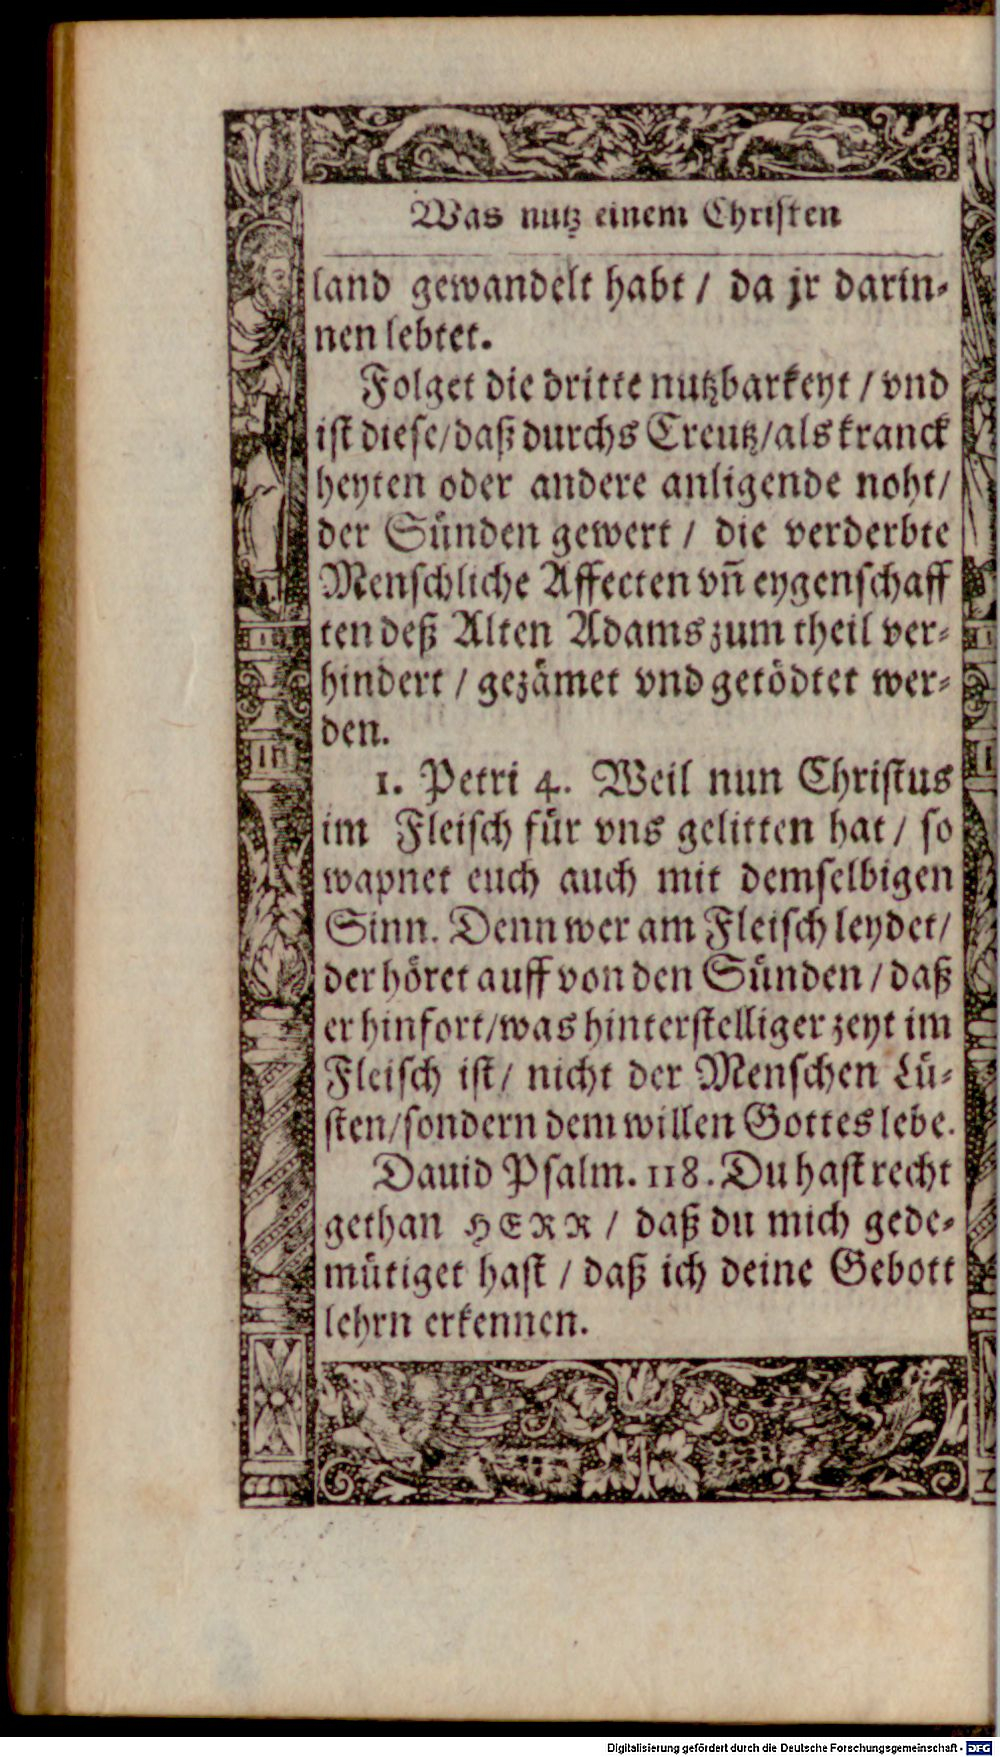 Was nutz einem Christen
land gewandelt habt / da jr darin⸗
nen lebtet.
Folget die dritte nutzbarkeyt / vnd
ist diese/daß durchs Creutz/als kranck
heyten oder andere anligende noht/
der Sünden gewert / die verderbte
Menschliche Affecten vñ eygenschaff
ten deß Alten Adams zum theil ver⸗
hindert / gezämet vnd getödtet wer⸗
den.
1. Petri 4. Weil nun Christus
im Fleisch für vns gelitten hat / so
wapnet euch auch mit demselbigen
Sinn. Denn wer am Fleisch leydet/
der höret auff von den Sünden / daß
er hinfort/was hinterstelliger zeyt im
Fleisch ist/ nicht der Menschen Lü⸗
sten/sondern dem willen Gottes lebe.
Dauid Psalm. 118. Du hast recht
gethan HERR / daß du mich gede⸗
mütiget hast / daß ich deine Gebott
lehrn erkennen.
Digitalisierung gefördert durch die Deutsche Forschungsgemeinschaft - DFG